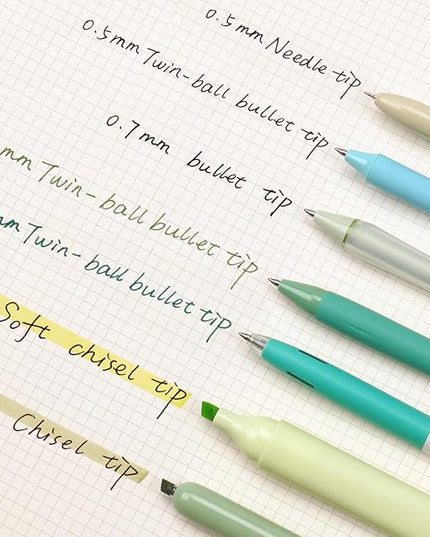 0.5mm Needle tip
0.5mm Twin-ball bullet tip
0.7mm bullet tip
mm Twin-ball bullet tip
mm Twin-ball bullet tip
Soft chisel tip
Chisel tip